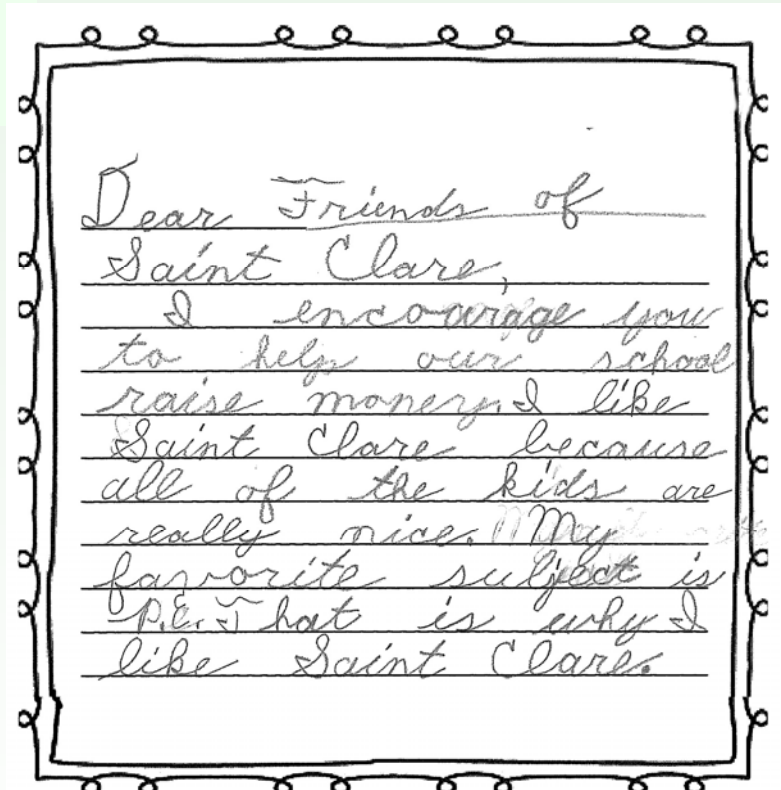 Dear Friends of
Saint Clare,
I encourage you
to help our school
raise money. I like
Saint Clare because
all of the kids are
really nice. My
favorite subject is
P.E. That is why I
like Saint Clare.